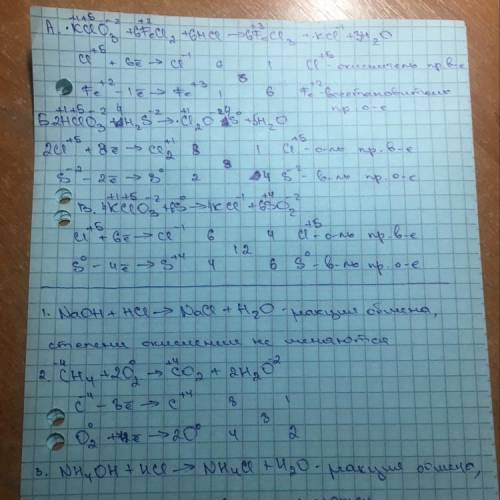 А. KClO₃ + 6FeCl₂ + 6HCl → 6FeCl₃ + KCl + 3H₂O
Cl⁺⁵ + 6ē → Cl⁻¹ 6 1 Cl⁺⁵ - окислитель пр. в-е
6
Fe⁺² - 1ē → Fe⁺³ 1 6 Fe⁺² - восстановитель
пр о-е
Б. 2HClO₃ + 4H₂S⁻² → Cl₂O + 4S⁰ + 5H₂O
2Cl⁺⁵ + 8ē → Cl₂⁺¹ 8 1 Cl⁺⁵ - о-ль пр. в-е
8
S⁻² - 2ē → S⁰ 2 4 S⁻² - в-ль пр. о-е
В. 4KClO₃ + 6S⁰ → 4KCl⁻¹ + 6SO₂
Cl⁺⁵ + 6ē → Cl⁻¹ 6 4 Cl⁺⁵ - о-ль пр. в-е
12
S⁰ - 4ē → S⁺⁴ 4 6 S⁰ - в-ль пр. о-е
1. NaOH + HCl → NaCl + H₂O - реакция обмена,
степени окисления не меняются
2. C⁻⁴H₄ + 2O₂⁰ → C⁺⁴O₂ + 2H₂O⁻²
C⁻⁴ - 8ē → C⁺⁴ 8 1
8
O₂⁰ + 4ē → 2O⁰ 4 2
3. NH₄OH + HCl → NH₄Cl + H₂O - реакция обмена,